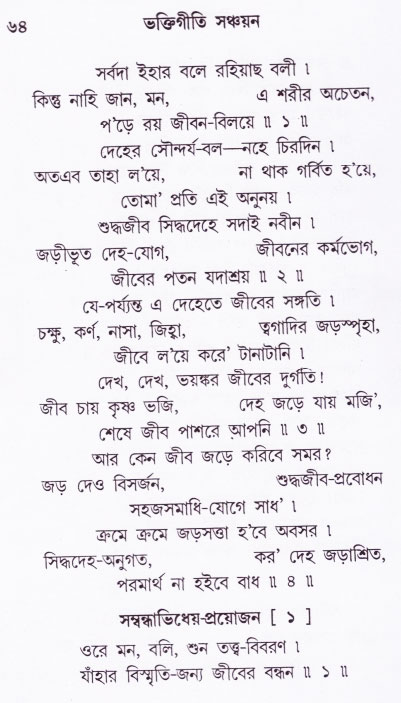 ৬৪
ভক্তিগীতি সঞ্চয়ন
সর্বদা ইহার বলে রহিয়াছ বলী ।
কিন্তু নাহি জান, মন, এ শরীর অচেতন,
প'ড়ে রয় জীবন-বিলয়ে ॥ ১ ॥
দেহের সৌন্দর্য-বল—নহে চিরদিন ।
অতএব তাহা ল'য়ে, না থাক গর্বিত হ'য়ে,
তোমা' প্রতি এই অনুনয় ।
শুদ্ধজীব সিদ্ধদেহে সদাই নবীন ।
জড়ীভূত দেহ-যোগ, জীবনের কর্মভোগ,
জীবের পতন যদাশ্রয় ॥ ২ ॥
যে-পর্য্যন্ত এ দেহেতে জীবের সঙ্গতি ।
চক্ষু, কর্ণ, নাসা, জিহ্বা, ত্বগাদির জড়স্পৃহা,
জীবে ল'য়ে করে' টানাটানি ।
দেখ, দেখ, ভয়ঙ্কর জীবের দুর্গতি!
জীব চায় কৃষ্ণ ভজি, দেহ জড়ে যায় মজি',
শেষে জীব পাশরে আপনি ॥ ৩ ॥
আর কেন জীব জড়ে করিবে সমর?
জড় দেও বিসর্জন, শুদ্ধজীব-প্রবোধন
সহজসমাধি-যোগে সাধ' ।
ক্রমে ক্রমে জড়সত্তা হ'বে অবসর ।
সিদ্ধদেহ-অনুগত, কর' দেহ জড়াশ্রিত,
পরমার্থ না হইবে বাধ ॥ ৪ ॥
সম্বন্ধাভিধেয়-প্রয়োজন [ ১ ]
ওরে মন, বলি, শুন তত্ত্ব-বিবরণ ।
যাঁহার বিস্মৃতি-জন্য জীবের বন্ধন ॥ ১ ॥